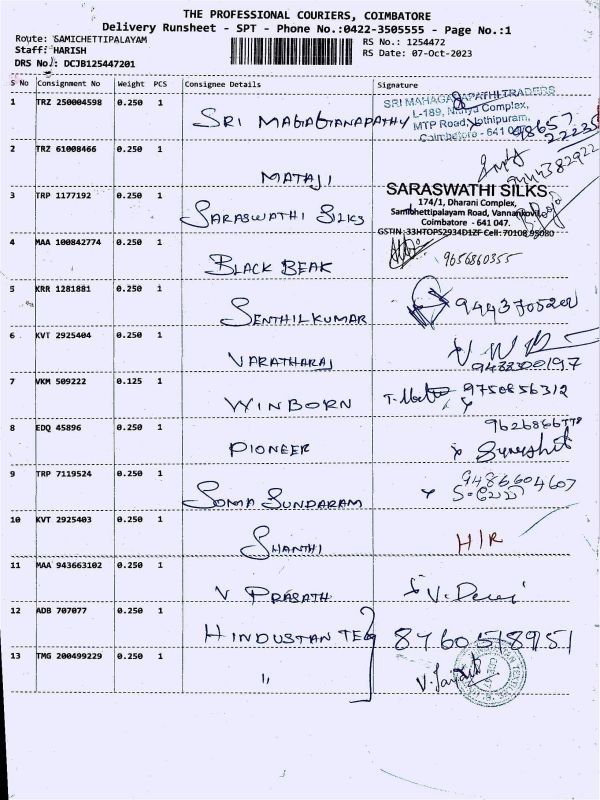 THE PROFESSIONAL COURIERS, COIMBATORE
Delivery Runsheet - SPT - Phone No.:0422-3505555 - Page No.:1
Route: SAMICHETTIPALAYAM
Staff: HARISH
DRS No.: DCJB125447201
RS No.: 1254472
RS Date: 07-Oct-2023
S No Consignment No Weight PCS Consignee Details Signature
1 TRZ 250004598 0.250 1 SRI MAGAGANAPATHY
SRI MAHAGANAPATHI TRADERS
L-189, Nithya Complex,
MTP Road, Jothipuram,
Coimbatore - 641
98657
22235
2 TRZ 61008466 0.250 1 MATAJI
3 TRP 1177192 0.250 1 SARASWATHI SILKS
SARASWATHI SILKS
174/1, Dharani Complex,
Samichettipalayam Road, Vannankovil,
Coimbatore - 641 047.
GSTIN :33HTOPS2934D1ZF Cell:70108 95080
4 MAA 100842774 0.250 1 BLACK BEAK
9656860355
5 KRR 1281881 0.250 1 SENTHILKUMAR
6 KVT 2925404 0.250 1 VARATHARAJ
7 VKM 509222 0.125 1 WINBORN
9750856312
8 EDQ 45896 0.250 1 PIONEER
9 TRP 7119524 0.250 1 SOMA SUNDARAM
9486604607
10 KVT 2925403 0.250 1 SHANTHI H/R
11 MAA 943663102 0.250 1 V PRASATH V. Devi
12 ADB 707077 0.250 1 HINDUSTAN TEX 8760518951
13 TMG 200499229 0.250 1 "